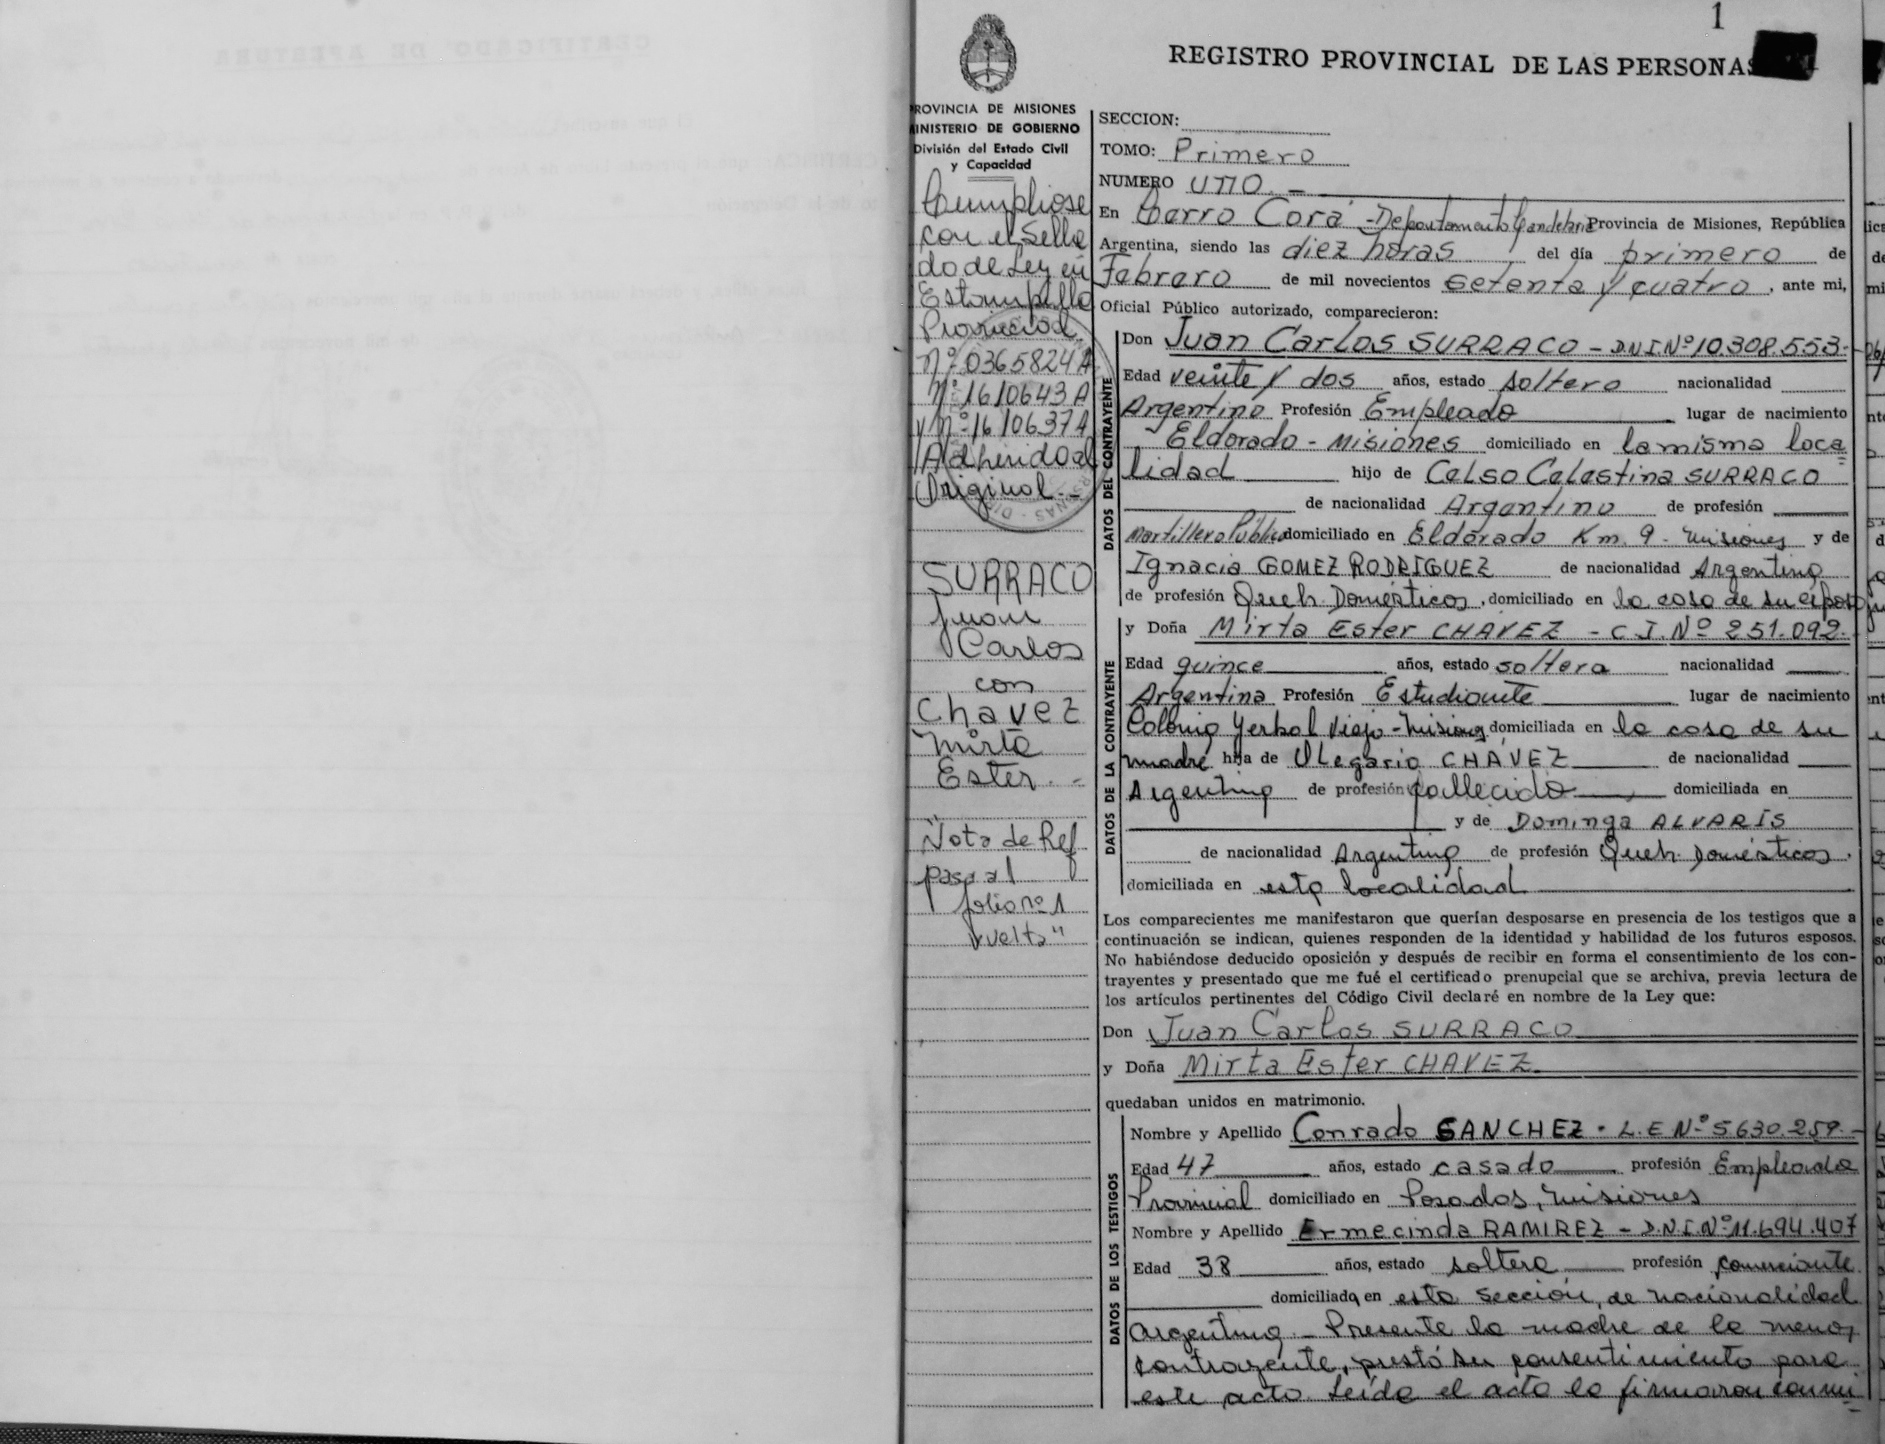 1
REGISTRO PROVINCIAL DE LAS PERSONAS
PROVINCIA DE MISIONES
MINISTERIO DE GOBIERNO
División del Estado Civil
y Capacidad
Cumpliose
con el Sella
do de Ley en
Estampilla
Provincial
Nº 0365824 A
Nº 1610643 A
y Nº 1610637 A
Adherido al
Original.-
SURRACO
Juan
Carlos
con
Chavez
Mirta
Ester.-
"Nota de Ref
pasa al
folio nº 1
vuelta"
SECCION:
TOMO: Primero
NUMERO UNO. -
En Cerro Corá -Departamento Candelaria Provincia de Misiones, República
Argentina, siendo las diez horas del día primero de
Febrero de mil novecientos setenta y cuatro, ante mi,
Oficial Público autorizado, comparecieron:
DATOS DEL CONTRAYENTE
Don Juan Carlos SURRACO - DNI.Nº 10.308.553-
Edad veinte y dos años, estado soltero nacionalidad
Argentino Profesión Empleado lugar de nacimiento
Eldorado - Misiones domiciliado en la misma loca
lidad hijo de Celso Celestino SURRACO
de nacionalidad Argentino de profesión
Martillero Público domiciliado en Eldorado Km. 9 - Misiones y de
Ignacia GOMEZ RODRIGUEZ de nacionalidad Argentina
de profesión Queh. Domésticos, domiciliado en la casa de su esposo
DATOS DE LA CONTRAYENTE
y Doña Mirta Ester CHAVEZ - C.I. Nº 251.092.
Edad quince años, estado soltera nacionalidad
Argentina Profesión Estudiante lugar de nacimiento
Colonia Yerbal Viejo - Misiones domiciliada en la casa de su
madre hija de Olegario CHÁVEZ de nacionalidad
Argentina de profesión fallecido domiciliada en
y de Dominga ALVARIS
de nacionalidad Argentina de profesión Queh. Domésticos.
domiciliada en esta localidad
Los comparecientes me manifestaron que querían desposarse en presencia de los testigos que a
continuación se indican, quienes responden de la identidad y habilidad de los futuros esposos.
No habiéndose deducido oposición y después de recibir en forma el consentimiento de los con-
trayentes y presentado que me fué el certificado prenupcial que se archiva, previa lectura de
los artículos pertinentes del Código Civil declaré en nombre de la Ley que:
Don Juan Carlos SURRACO
y Doña Mirta Ester CHAVEZ
quedaban unidos en matrimonio.
DATOS DE LOS TESTIGOS
Nombre y Apellido Conrado SANCHEZ - L.E Nº 5.630.259.-
Edad 47 años, estado casado profesión Empleado
Provincial domiciliado en Posadas, Misiones
Nombre y Apellido Ermecinda RAMIREZ - D.N.I.Nº 11.694.407
Edad 38 años, estado soltera profesión comerciante
domiciliada en esta sección, de nacionalidad
argentina - Presente la madre de la menor
contrayente, prestó su consentimiento para
este acto. Leída el acta la firmaron conmi